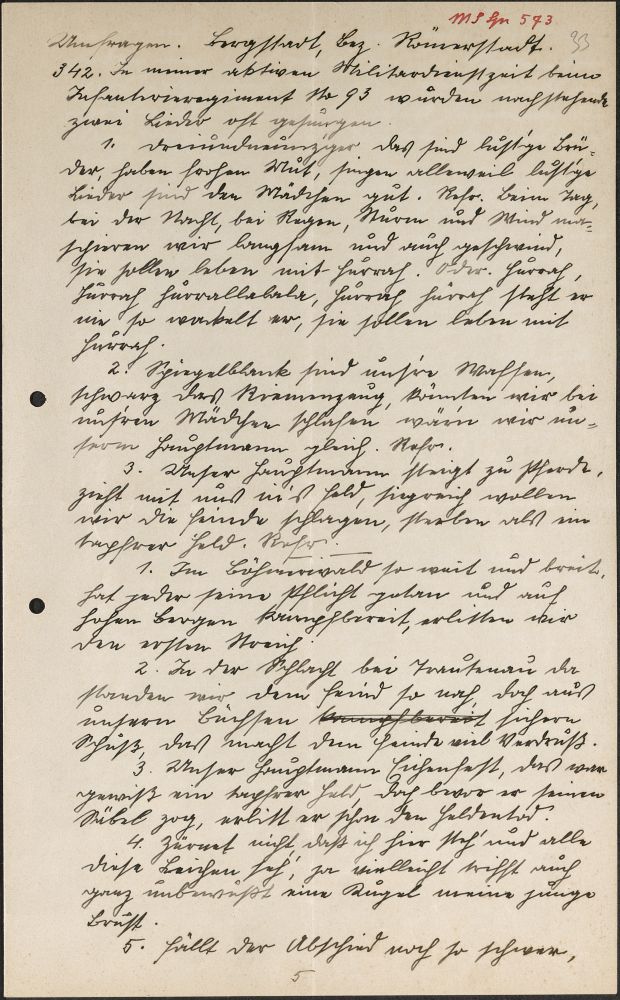 MS Gn 573
33
Umfragen. Bergstadt, Bez. Römerstadt.
342. In meiner aktiven Militärdienstzeit beim
Infanterieregiment No 93 wurden nachstehende
zwei Lieder oft gesungen.
1. Dreiundneunziger das sind lust'ge Brü-
der, haben frohen Mut, singen alleweil lust'ge
Lieder sind den Mädchen gut. Refr. Beim Tag,
bei der Nacht, bei Regen, Sturm und Wind ma-
schieren wir langsam und auch geschwind,
sie sollen leben mit Hurrah. Oder. Hurrah,
Hurrah hurrallalala, hurrah hurrah steht er
nie so wackelt er, sie sollen leben mit
Hurrah.
2. Spiegelblank sind uns're Waffen,
schwarz das Riemenzeug, könnten wir bei
unsren Mädchen schlafen wär'n wir un-
serm Hauptmann gleich. Refr.
3. Unser Hauptmann steigt zu Pferde,
zieht mit uns in's Feld, siegreich wollen
wir die Feinde schlagen, sterben als ein
tapfrer Held. Refr.
1. Im Böhmerwald so weit und breit,
hat jeder seine Pflicht getan und auf
hohen Bergen kampfbereit, erlitten wir
den ersten Streich
2. In der Schlacht bei Trautenau da
standen wir dem Feind so nah, doch aus
unsern Büchsen kampfbereit sichern
Schuß, das macht dem Feinde viel Verdruß.
3. Unser Hauptmann Eichenfest, das war
gewiß ein tapfrer Held, doch bevor er seinen
Säbel zog, erlitt er schon den Heldentod.
4. Zürnet nicht, daß ich hier steh' und alle
diese Leichen seh', ja vielleicht trifft auch
ganz unbewußt eine Kugel meine junge
Brust.
5. Fällt der Abschied noch so schwer,
5